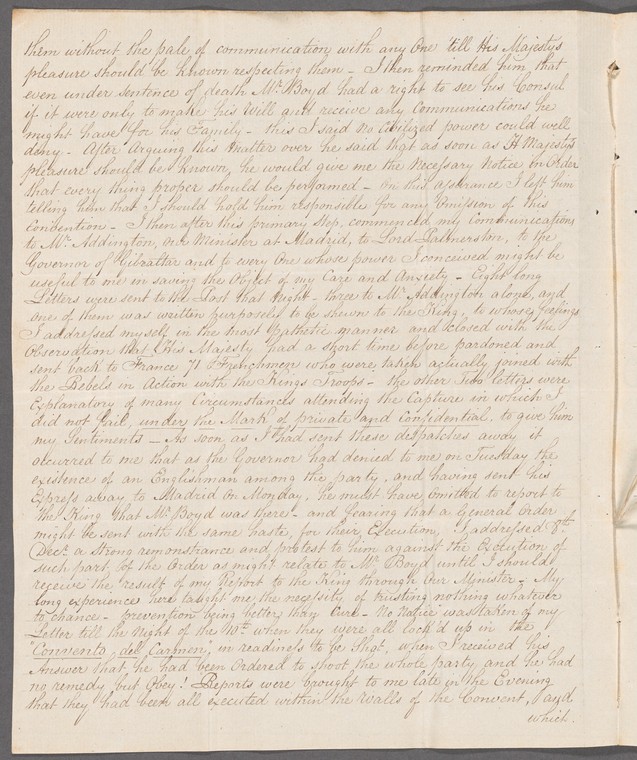 them without the pale of communication with any One 'till His Majesty's
pleasure should be known respecting them – I then reminded him that
even under sentence of death Mr. Boyd had a right to see his Consul
if it were only to make his Will and receive any Communications he
might have for his Family – this I said no Civilized power could well
deny – After Arguing this Matter over he said that as soon as H Majesty's
pleasure should be known, he would give me the Necessary Notice in Order
that every thing proper should be performed – On this assurance I left him
telling him that I should hold him responsible for any Omission of this
Condention – I then after this primary step, commenced my Communications
to Mr. Addington, our Minister at Madrid, to Lord Palmerston, to the
Governor of Gibraltar and to every One whose power I conceived might be
useful to me in saving the Object of my Care and Anxiety – Eight long
Letters were sent to the Post that Night – three to Mr. Addington alone, and
one of them was written purposely to be shewn to the King, to whose feelings
I addressed myself in the most pathetic manner and closed with the
Observation that His Majesty had a short time before pardoned and
sent back to France 71 Frenchmen who were taken actually joined with
the Rebels in Action with the Kings Troops – the other Two letters were
Explanatory of many Circumstances attending the Capture in which I
did not fail, under the Mark of private and Confidential, to give him
my Sentiments – As soon as I had sent these despatches away it
occurred to me that as the Governor had denied to me on Tuesday the
existence of an Englishman among the party, and having sent his
Express away to Madrid on Monday, he must have omitted to report to
the King that Mr. Boyd was there – and fearing that a General Order
might be sent with the same haste, for their Execution, I addressed 8th
Decr. a strong remonstrance and protest to him against the Execution of
such part, of the Order as might relate to Mr. Boyd until I should
receive the result of my Report to the King through Our Minister – My
long experience here taught me the necessity of trusting nothing whatever
to chance – prevention being better than Cure – No Notice was taken of my
Letter till the Night of the 10th. when they were all lock'd up in the
Convento del Carmen, in readiness to be Shot, when I received his
Answer that he had been Ordered to shoot the whole party and he had
no remedy but Obey! Reports were brought to me late in the Evening
that they had been all executed within the Walls of the Convent, and
which.